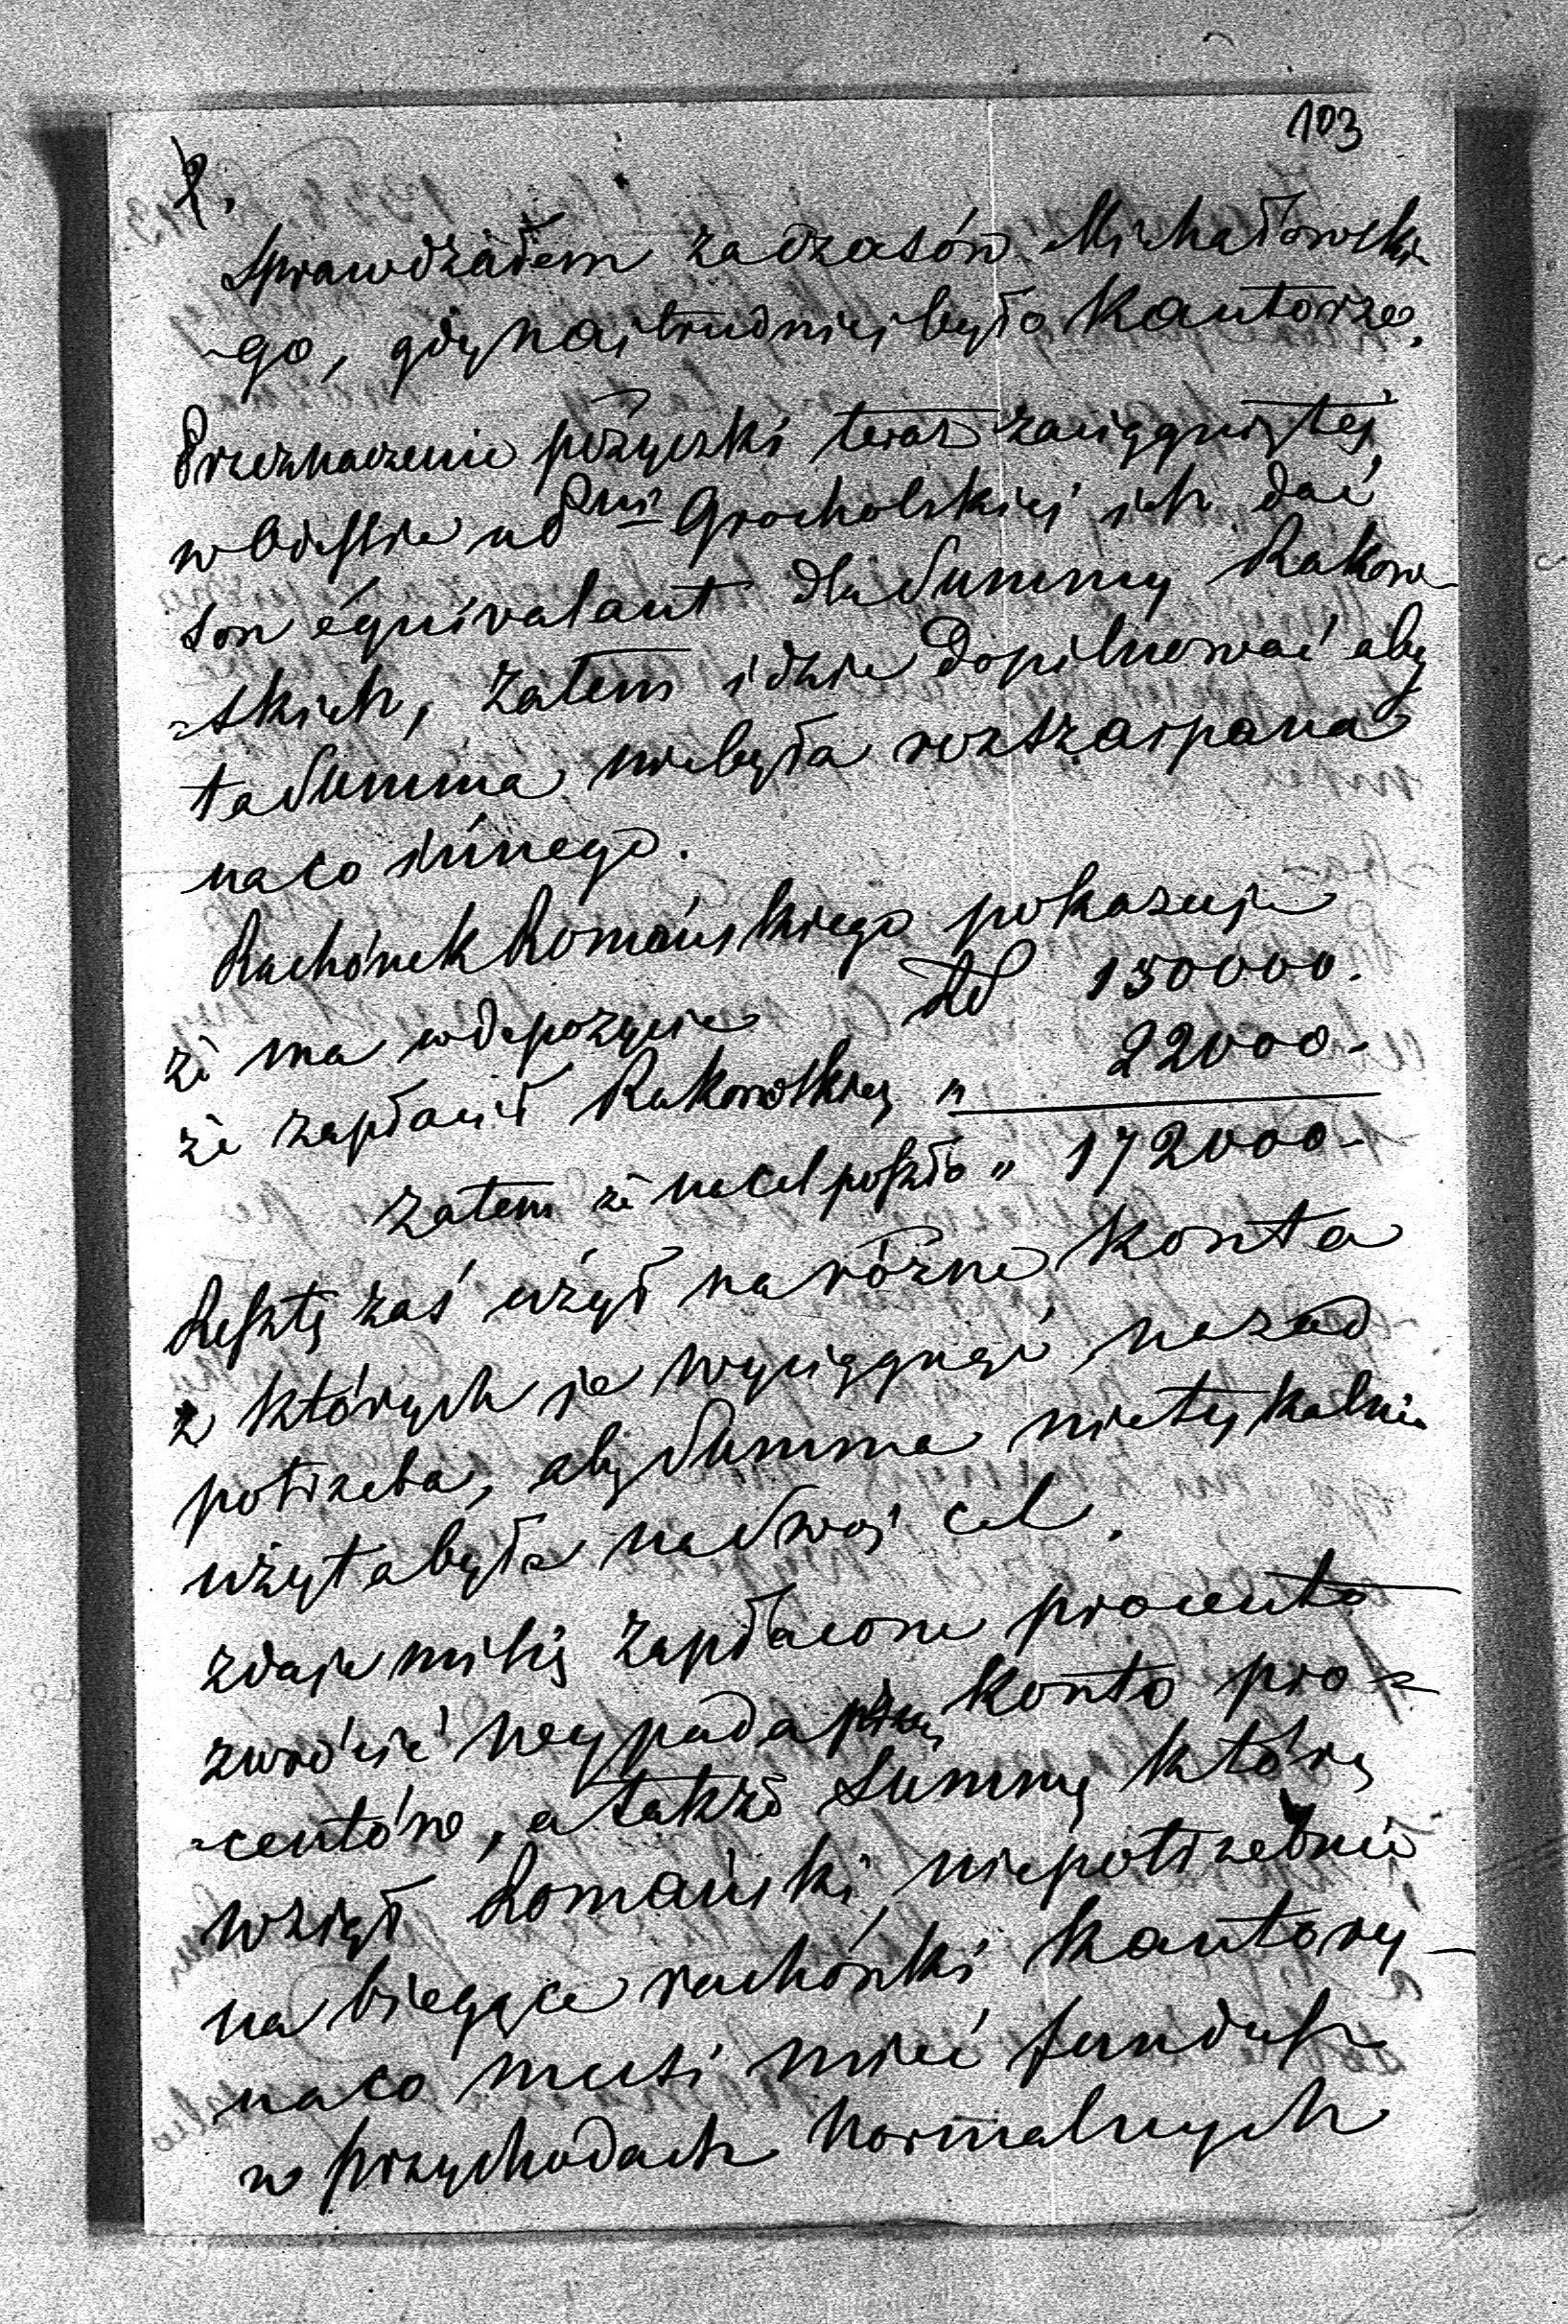 103
2.
sprawdzałem za czasów Michałowskie-
-go, gdy najtrudniej było kantorze.
Przeznaczenie pożyczki teraz zaciągniętej
w Odessie u Pni Grocholskiej jest dać
son équivalant dla Summy Rakow-
-skich, zatem idzie dopilnować aby
ta Summa niebyła rozszarpana
na co innego.
Rachónek Romańskiego pokazuje
że ma w depozycie 150000.
że zapłacił Rakowskiej " 22000-
zatem że na cel poszło " 172000-
Resztę zaś użył na różne konta
z których je wyciągnąć nazad
potrzeba, aby Summa nietykalnie
użyta była na swój cel.
zdaje mi się zapłacone procenta
zwrócić wypada konto pro-
-centów, a także Summę którą
wziął Romański niepotrzebnie
na bieżące rachónki kantory
na co musi mieć fundusz
w przychodach normalnych